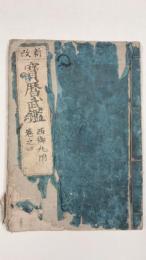 新改
寶暦武鑑
西御丸附
巻之四